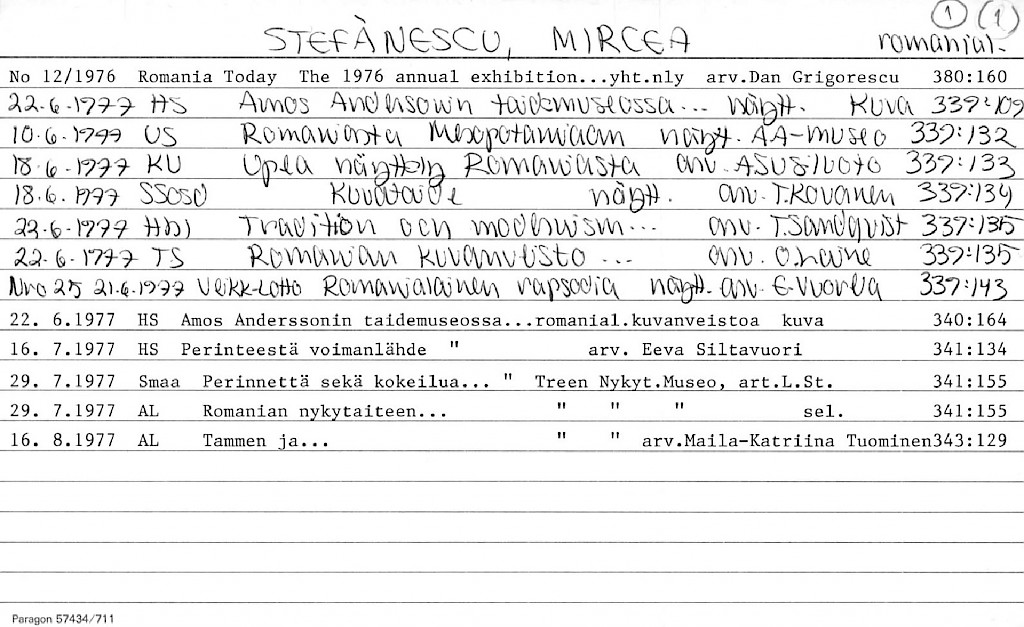 1 1
STEFÀNESCU, MIRCEA romanial.
No 12/1976 Romania Today The 1976 annual exhibition...yht.nly arv.Dan Grigorescu 380:160
22.6.1977 HS Amos Andersonin taidemuseossa... näytt. Kuva 339:109
10.6.1977 US Romaniasta Mesopotamiaan näytt. AA-museo 339:132
18.6.1977 KU Upea näyttely Romaniasta arv. 339:133
18.6.1977 SSosd Kuvataide näytt. arv. T.Kovanen 339:134
22.6.1977 Hbl Tradition och modernism... arv. T.Sandqvist 339:135
22.6.1977 TS Romanian kuvanveisto ... arv. O.Laine 339:135
Nro 25 21.6.1977 Veikk-Lotto Romanialainen rapsodia näytt. arv. E.Vuorela 339:143
22. 6.1977 HS Amos Anderssonin taidemuseossa...romanial.kuvanveistoa kuva 340:164
16. 7.1977 HS Perinteestä voimanlähde " arv. Eeva Siltavuori 341:134
29. 7.1977 Smaa Perinnettä sekä kokeilua... " Treen Nykyt.Museo, art.L.St. 341:155
29. 7.1977 AL Romanian nykytaiteen... " " " sel. 341:155
16. 8.1977 AL Tammen ja... " " arv.Maila-Katriina Tuominen343:129
Paragon 57434/711